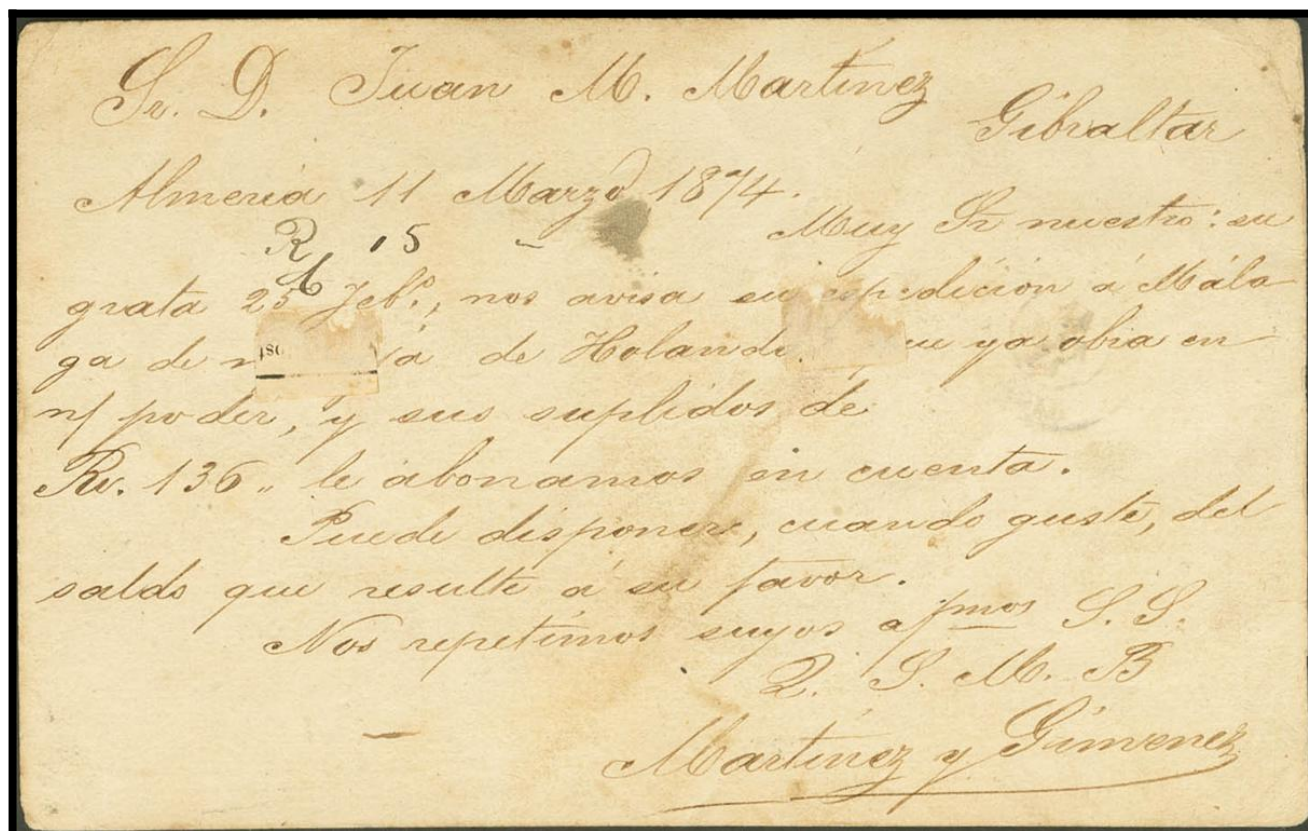 Sr. D. Juan M. Martinez
Gibraltar
Almeria 11 Marzo 1874.
R 15 -
Muy Sr nuestro: su
grata 25 Feb.º, nos avisa su expedición á Mála-
ga de de Holanda ya obra en
n/ poder, y sus suplidos de
Rv. 136 „ le abonamos en cuenta.
Puede disponer, cuando guste, del
saldo que resulte á su favor.
Nos repetimos suyos afmos S. S.
Q. S. M. B
Martinez y Gimenez